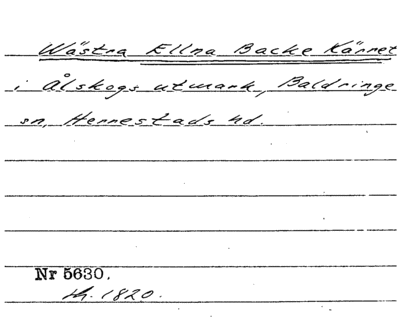 Wästra Ellna Backe Kärret
i Ålskogs utmark, Baldringe
sn, Herrestads hd.
Nr 5630.
1820.